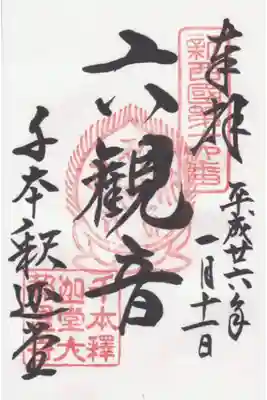 奉拝
新西國第十六番
平成廿六年
一月十一日
六觀音
千本釈迦堂
千本釋
迦堂大
報恩寺